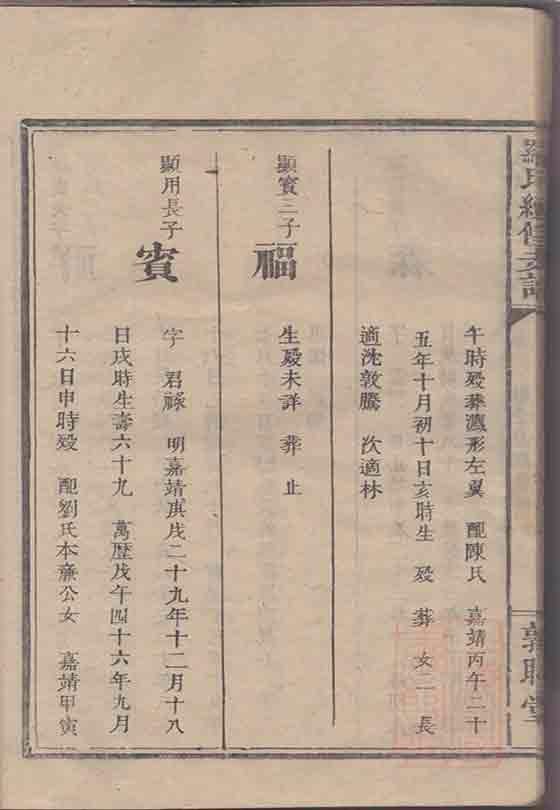 羅氏
敦睦堂
午時殁葬形左翼 配陳氏 嘉靖丙午二十
五年十月初十日亥時生 殁 葬 女二 長
適沈敦騰 次適林
顯賓三子
福
生殁未詳 葬 止
顯用長子
賓
字 君祿 明嘉靖庚戌二十九年十二月十八
日戌時生壽六十九 萬歷戊午四十六年九月
十六日申時殁 配劉氏本亷公女 嘉靖甲寅